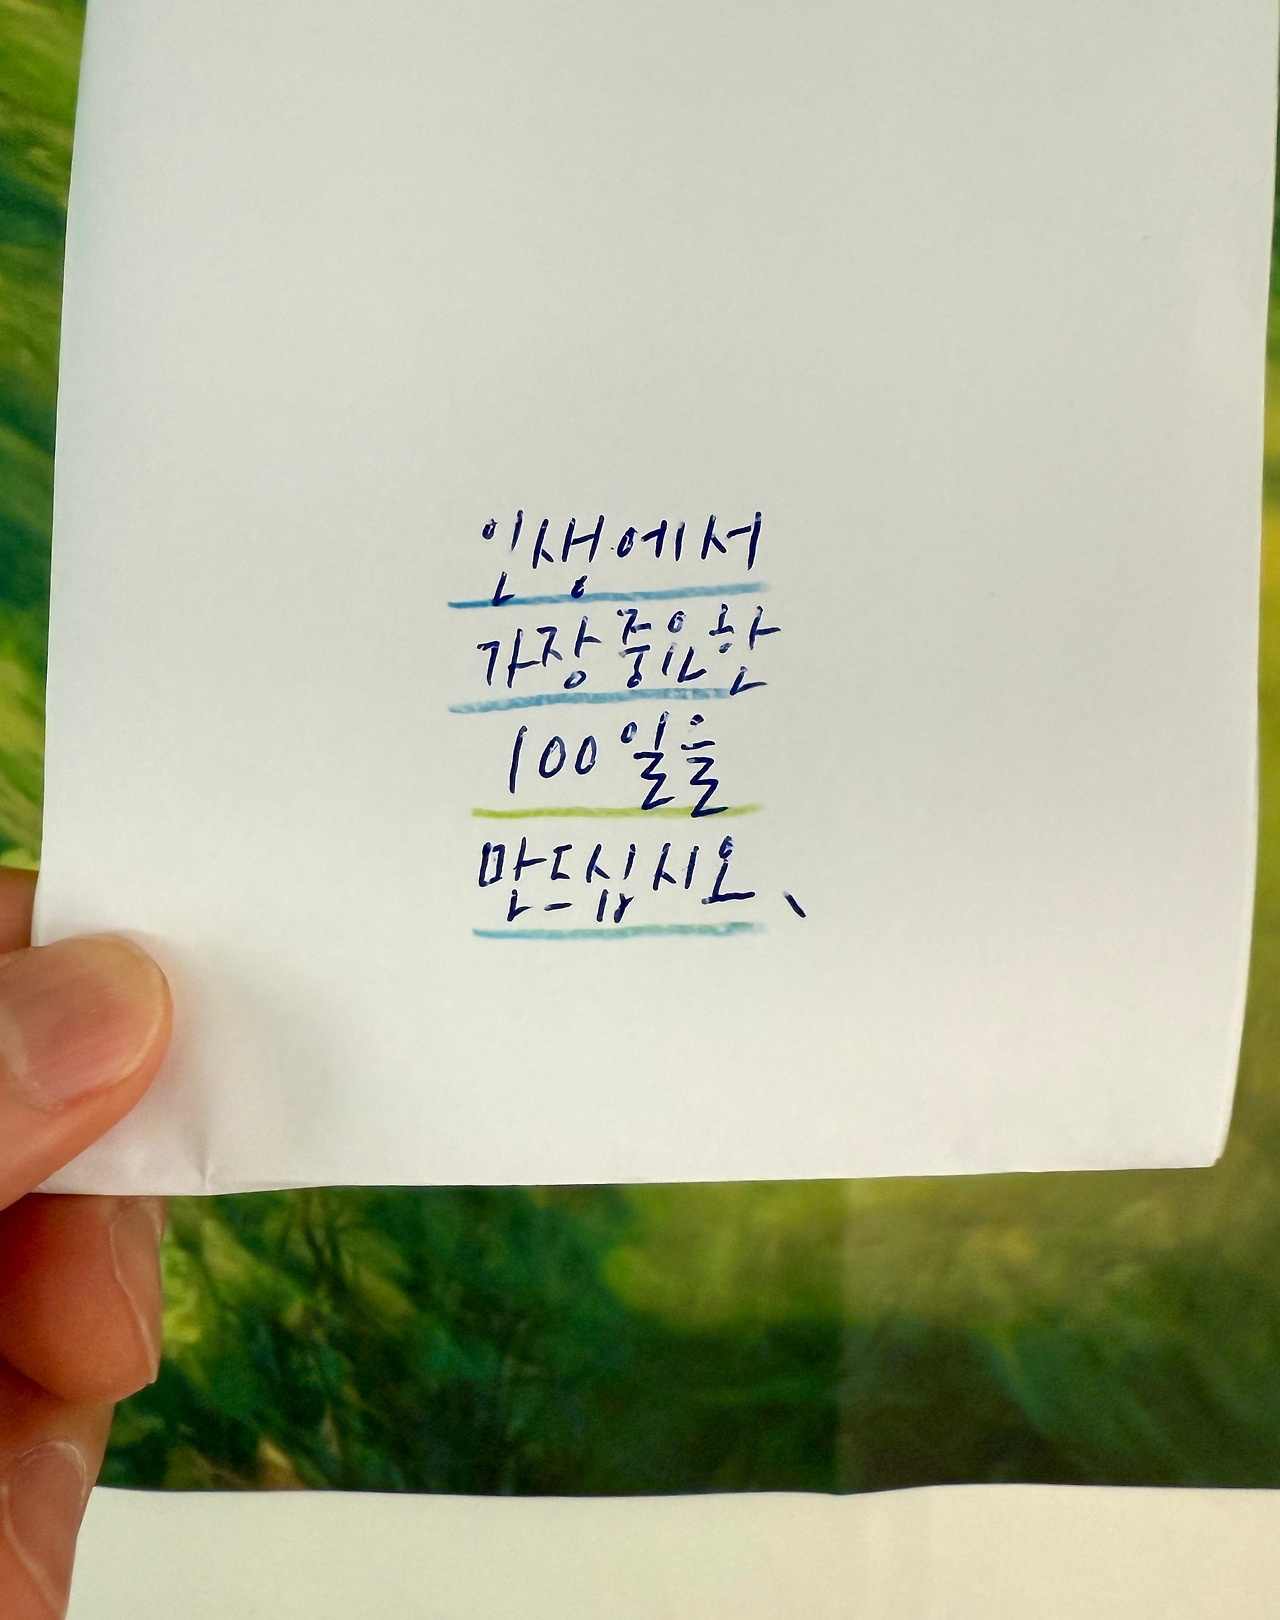 인생에서
가장 중요한
100일을
만드십시오、